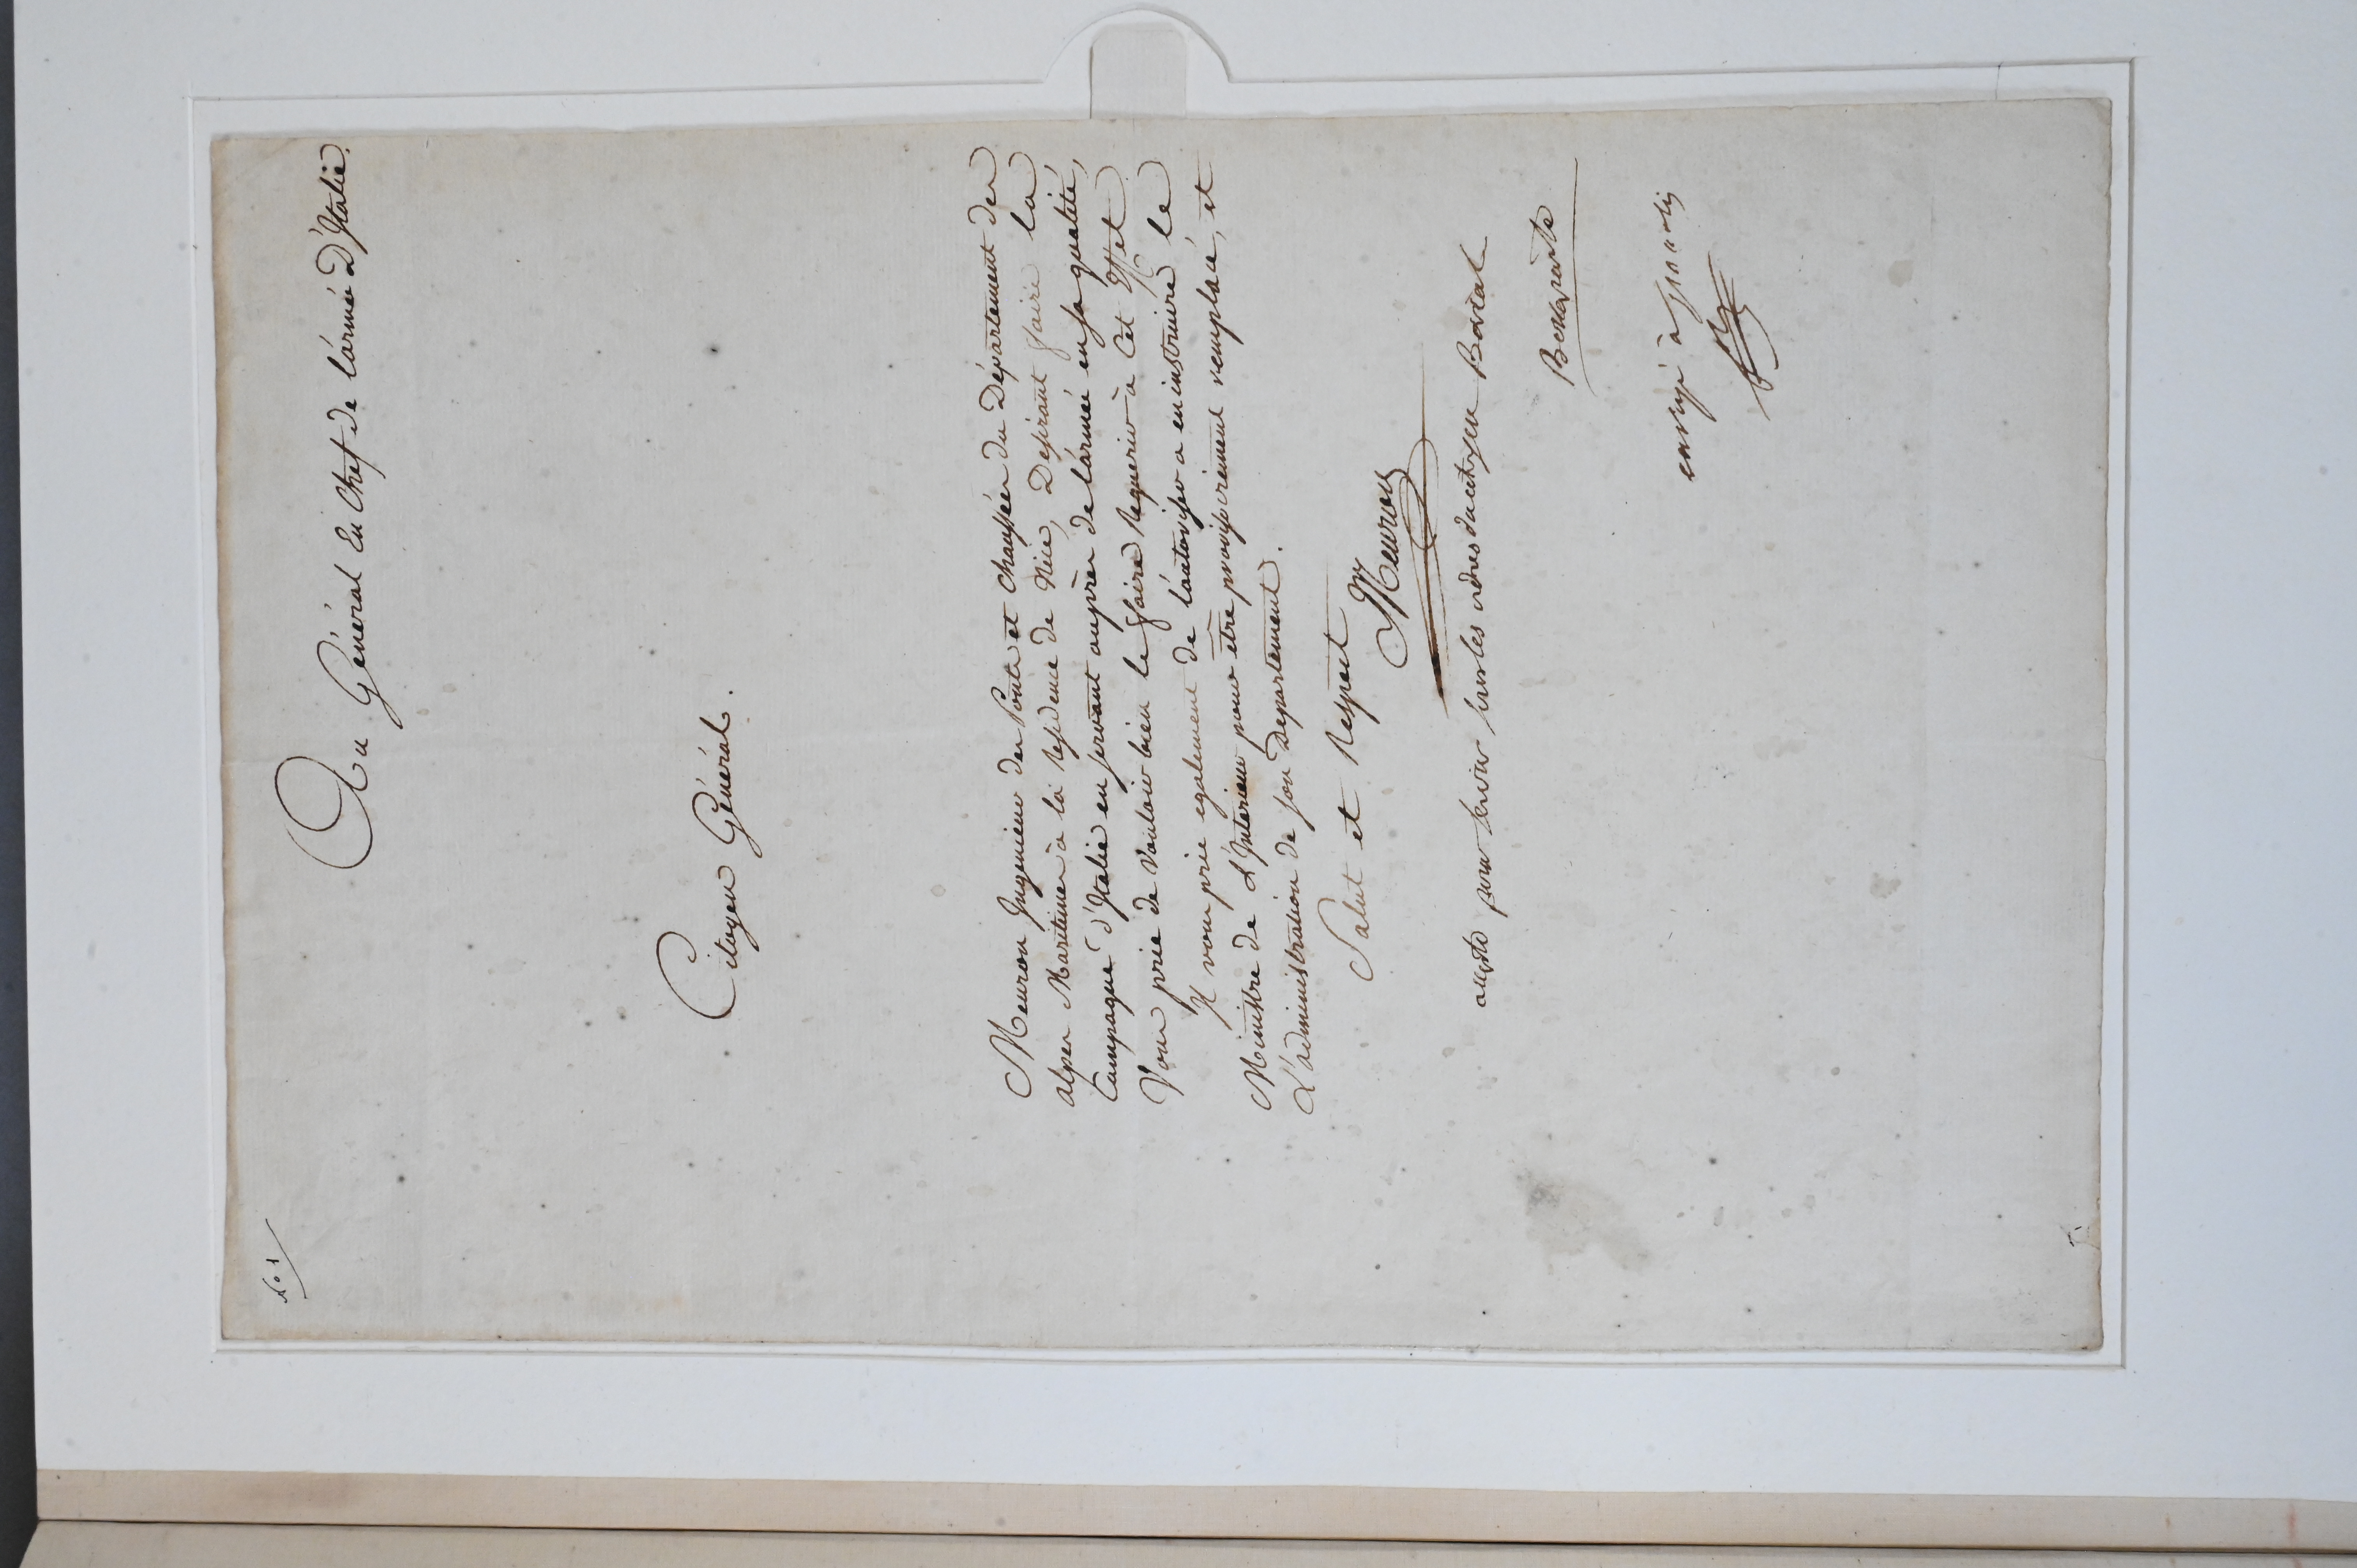 Au Général En Chef de l'armée D'Italie.
Citoyen Général.
Meuron Ingenieur des Ponts et Chaussées du Département des
alpes Maritimes à la Residence de Nice, Desirant faire la
Campagne d'Italie en servant auprès de l'armée en sa qualité,
Vous prie de Vouloir bien le faire Requerir à Cet Effet
Il vous prie egalement de l'autoriser a en instruire le
Ministre de L'Interieur pour être provisoirement remplacé, et
L'administration de son Departement.
Salut et Respect
Meuron
pour servir sous les ordres du citoyen
Bonaparte
à